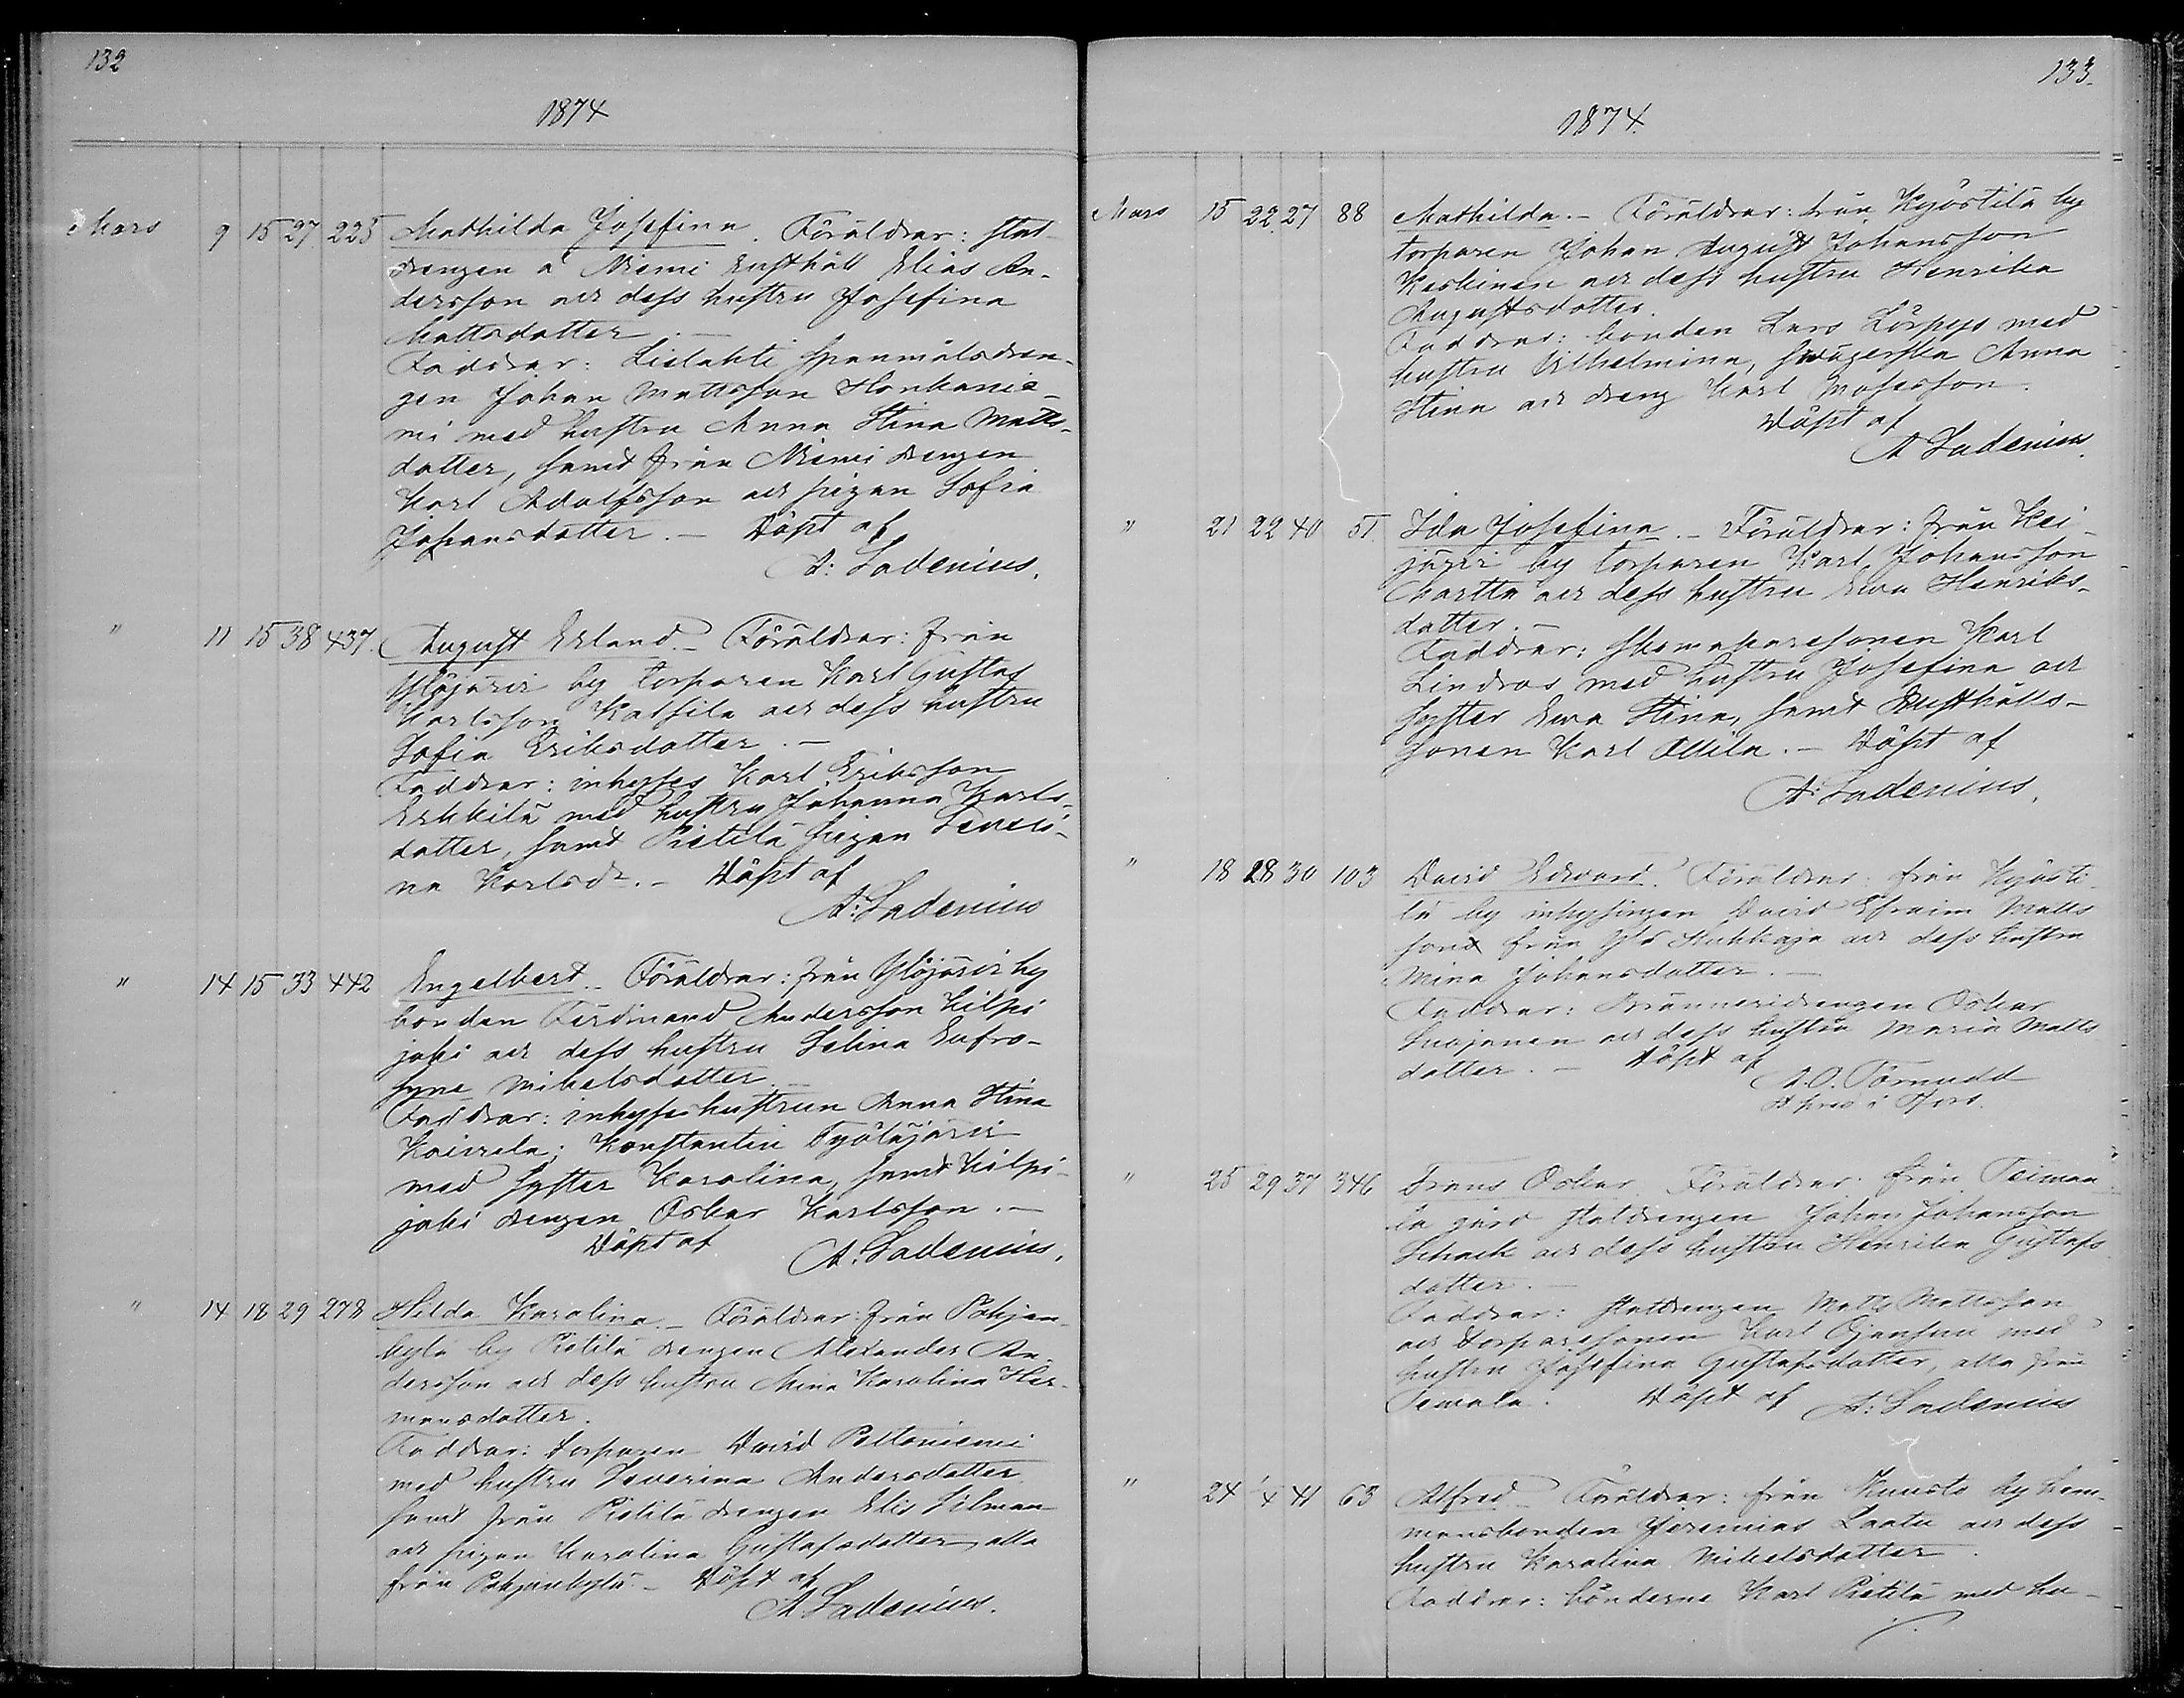 132
1874
Mars 9 15 27 225 Mathilda Josefina. Föräldrar: stat-
drengen å Niemi Rusthåll Elias An-
dersson och dess hustru Josefina
Mattsdotter. –
Faddrar: Lielahti spanmålsdren-
gen Johan Mattsson Honkanie-
mi med hustru Anna Stina Matts-
dotter, samt från Niemi drengen
Karl Adolfsson och pigan Sofia
Johansdotter. – Döpt af
A: Ladenius.
" 11 15 38 437. August Erland. – Föräldrar: från
Ylöjärvi by torparen Karl Gustaf
Karlsson Katsila och dess hustru
Sofia Eriksdotter. –
Faddrar: inhyses Karl Eriksson
Erkkilä med hustru Johanna Karls-
dotter, samt Pietilä pigan Severi-
na Karlsdr. – Döpt af
A: Ladenius
" 14 15 33 442 Engelbert. – Föräldrar: från Ylöjärvi by
bonden Ferdinand Andersson Kilpi
joki och dess hustru Selina Eufro-
syne Mikelsdotter. –
Faddrar: inhyseshustrun Anna Stina
Koivula; Konstantin Työläjärvi
med syster Karolina, samt Kilpi-
joki drengen Oskar Karlsson. –
Döpt af A. Ladenius.
" 14 18 29 278 Hilda Karolina. – Föräldrar: från Pohjan-
kylä by Pietilä drengen Alexander An-
dersson och dess hustru Mina Karolina Her-
mansdotter.
Faddrar: torparen David Peltoniemi
med hustru Severina Andersdotter
samt från Pietilä drengen Elis Silman
och pigan Karolina Gustafsdotter, alla
från Pohjankylä. – Döpt af
A Ladenius.
133.
1874.
Mars 15 22 27 88 Mathilda. – Föräldrar: från Kyöstilä by
torparen Johan August Johansson
Keskinen och dess hustru Henrika
Augustsdotter.
Faddrar: bonden Lars Lörpys med
hustru Vilhelmina, svägerska Anna
Stina och dreng Karl Mosesson.
Döpt af
A Ladenius.
" 21 22 40 51. Ida Josefina. – Föräldrar: från Kei-
järvi by torparen Karl Johansson
Martta och dess hustru Eva Henriks-
dotter. –
Faddrar: skomakaresonen Karl
Lindros med hustru Josefina och
syster Eva Stina, samt Rusthålls-
sonen Karl Ollila. – Döpt af
A: Ladenius.
" 18 28 30 103 David Edvard. Föräldrar: från Kyösti-
lä by inhysingen David Efraim Matts
son från Yli Huhkaja och dess hustru
Mina Johansdotter. –
Faddrar: Bränneridrengen Oskar
Suojanen och dess hustru Maria Matts
dotter. – Döpt af
A. O. Törnudd
" 25 29 37 346 Frans Oskar. Föräldrar från Teivaa-
la gård statdrengen Johan Johansson
Schack och dess hustru Henrika Gustafs
dotter. –
Faddrar: statdrengen Matts Mattsson
och torparesonen Karl Ojansuu med
hustru Josefina Gustafsdotter, alla från
Teivala. Döpt af A: Ladenius
" 24 1/4 41 63 Alfred – Föräldrar: från Runsto by hem-
mansbonden Jeremias Laatu och dess
hustru Karolina Mikelsdotter.
Faddrar: bönderna Karl Pietilä med hu-